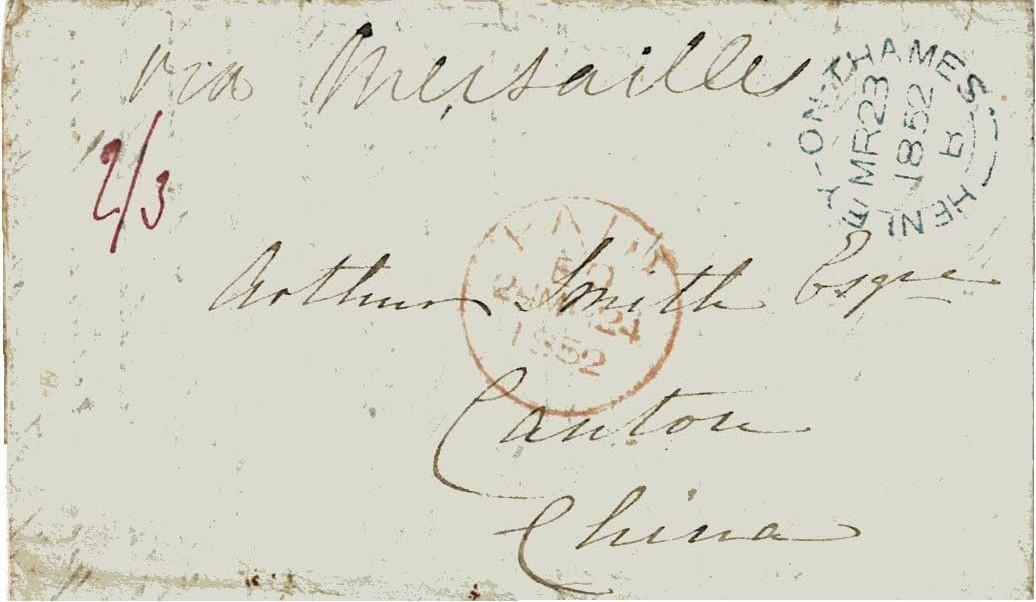 via Mersailles
HENLEY-ON-THAMES.
MR 23
1852
B
2/3
PAID
24 MR 24
1852
Arthur Smith Esqre
Canton
China